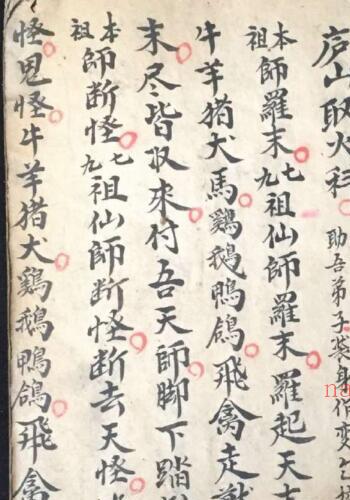 庐山取火科 助吾弟子裝身作變
本祖師羅末七九祖仙師羅末羅起天
牛羊猪犬馬鷄鵝鴨鴿飛禽走獸
末尽皆收來付吾天師脚下踏
本祖師断怪七九祖仙師断怪断去天怪
怪鬼怪牛羊猪犬鷄鵝鴨鴿飛禽